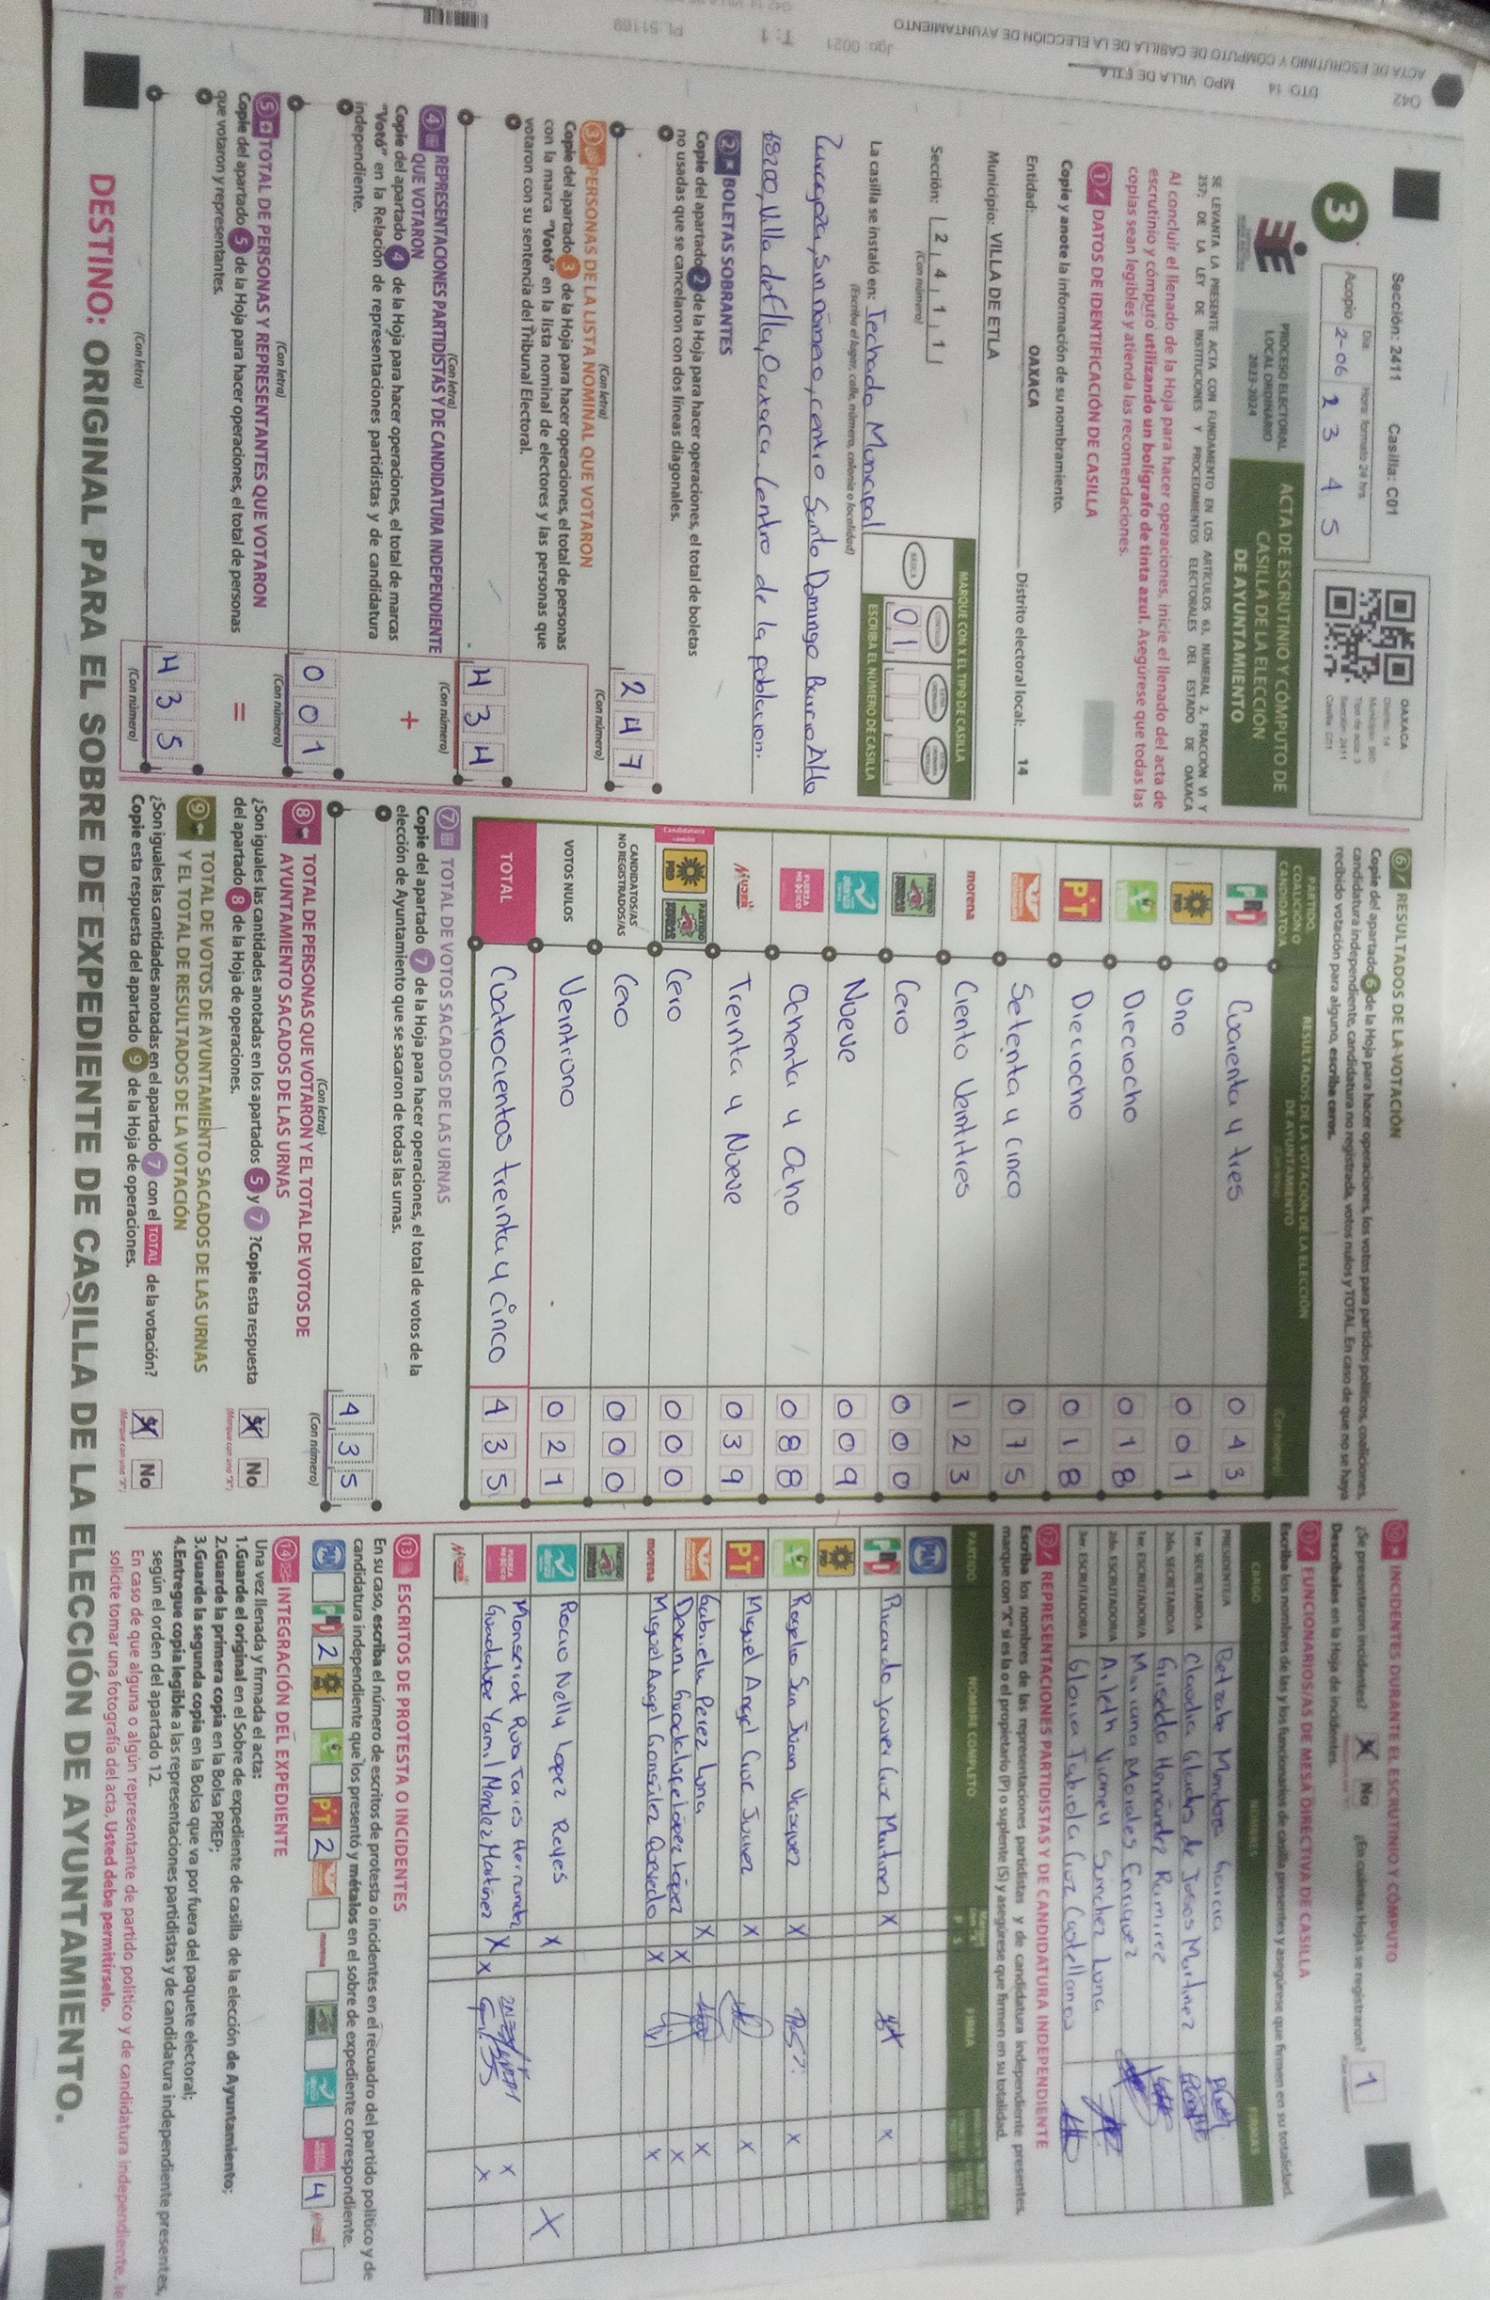 Sección: 2411 Casilla: C01
Acopio
Día: Hora: formato 24 hrs.
2-06 23 45
OAXACA
Distrito: 14
Sección: 2411
Casilla: C01
3
PROCESO ELECTORAL
LOCAL ORDINARIO
2023-2024
ACTA DE ESCRUTINIO Y CÓMPUTO DE
CASILLA DE LA ELECCIÓN
DE AYUNTAMIENTO
SE LEVANTA LA PRESENTE ACTA CON FUNDAMENTO EN LOS ARTÍCULOS 63, NUMERAL 2, FRACCIÓN VI Y
257; DE LA LEY DE INSTITUCIONES Y PROCEDIMIENTOS ELECTORALES DEL ESTADO DE OAXACA
Al concluir el llenado de la Hoja para hacer operaciones, inicie el llenado del acta de
escrutinio y cómputo utilizando un bolígrafo de tinta azul. Asegúrese que todas las
copias sean legibles y atienda las recomendaciones.
1 DATOS DE IDENTIFICACIÓN DE CASILLA
Copie y anote la información de su nombramiento.
Entidad: OAXACA Distrito electoral local: 14
Municipio: VILLA DE ETLA
Sección: 2 4 1 1
(Con número)
MARQUE CON X EL TIPO DE CASILLA
BÁSICA
01
ESCRIBA EL NÚMERO DE CASILLA
La casilla se instaló en: Techado Municipal
(Escriba el lugar, calle, número, colonia o localidad)
Zaragoza, sin número, centro Santo Domingo Barrio Alto
68200, Villa de Etla, Oaxaca Centro de la poblacion.
2 BOLETAS SOBRANTES
Copie del apartado 2 de la Hoja para hacer operaciones, el total de boletas
no usadas que se cancelaron con dos líneas diagonales.
247
(Con letra) (Con número)
3 PERSONAS DE LA LISTA NOMINAL QUE VOTARON
Copie del apartado 3 de la Hoja para hacer operaciones, el total de personas
con la marca "Votó" en la lista nominal de electores y las personas que
votaron con su sentencia del Tribunal Electoral.
434
(Con letra) (Con número)
4 REPRESENTACIONES PARTIDISTAS Y DE CANDIDATURA INDEPENDIENTE
QUE VOTARON
+
Copie del apartado 4 de la Hoja para hacer operaciones, el total de marcas
"Votó" en la Relación de representaciones partidistas y de candidatura
independiente.
001
(Con letra) (Con número)
5 TOTAL DE PERSONAS Y REPRESENTANTES QUE VOTARON
=
Copie del apartado 5 de la Hoja para hacer operaciones, el total de personas
que votaron y representantes.
435
(Con letra) (Con número)
6 RESULTADOS DE LA VOTACIÓN
Copie del apartado 6 de la Hoja para hacer operaciones, los votos para partidos políticos, coaliciones,
candidatura independiente, candidatura no registrada, votos nulos y TOTAL. En caso de que no se haya
recibido votación para alguno, escriba ceros.
PARTIDO, COALICIÓN O CANDIDATO/A
RESULTADOS DE LA VOTACIÓN DE LA ELECCIÓN
DE AYUNTAMIENTO
(Con letra) (Con número)
PRI Cuarenta y tres 043
PRD Uno 001
Dieciocho 018
PT Dieciocho 018
Setenta y cinco 075
morena Ciento Veintitres 123
PARTIDO POPULAR Cero 000
Nueve 009
FUERZA MÉXICO Ochenta y Ocho 088
MUJER Treinta y Nueve 039
PRD PARTIDO POPULAR Cero 000
CANDIDATOS/AS
NO REGISTRADOS/AS Cero 000
VOTOS NULOS Veintiuno 021
TOTAL Cuatrocientos treinta y cinco 435
7 TOTAL DE VOTOS SACADOS DE LAS URNAS
Copie del apartado 7 de la Hoja para hacer operaciones, el total de votos de la
elección de Ayuntamiento que se sacaron de todas las urnas.
435
(Con letra) (Con número)
8 TOTAL DE PERSONAS QUE VOTARON Y EL TOTAL DE VOTOS DE
AYUNTAMIENTO SACADOS DE LAS URNAS
¿Son iguales las cantidades anotadas en los apartados 5 y 7 ? Copie esta respuesta
del apartado 8 de la Hoja de operaciones.
Sí No
(Marque con una "X")
9 TOTAL DE VOTOS DE AYUNTAMIENTO SACADOS DE LAS URNAS
Y EL TOTAL DE RESULTADOS DE LA VOTACIÓN
¿Son iguales las cantidades anotadas en el apartado 7 con el TOTAL de la votación?
Copie esta respuesta del apartado 9 de la Hoja de operaciones.
Sí No
(Marque con una "X")
10 INCIDENTES DURANTE EL ESCRUTINIO Y CÓMPUTO
¿Se presentaron incidentes? Sí No ¿En cuántas Hojas se registraron? 1
Descríbalos en la Hoja de incidentes.
11 FUNCIONARIOS/AS DE MESA DIRECTIVA DE CASILLA
Escriba los nombres de las y los funcionarios de casilla presentes y asegúrese que firmen en su totalidad.
CARGO NOMBRES FIRMAS
PRESIDENTE/A Betzabe Mendoza Garcia
1er. SECRETARIO/A Claudia Gludys de Jesus Martinez
2do. SECRETARIO/A Griselda Hernández Ramirez
1er. ESCRUTADOR/A Mariana Morales Enriquez
2do. ESCRUTADOR/A Arleth Vianell Sanchez Luna
3er. ESCRUTADOR/A Gloria Fabiola Cruz Castellanos
12 REPRESENTACIONES PARTIDISTAS Y DE CANDIDATURA INDEPENDIENTE
Escriba los nombres de las representaciones partidistas y de candidatura independiente presentes,
marque con "X" si es la o el propietario (P) o suplente (S) y asegúrese que firmen en su totalidad.
PARTIDO NOMBRE COMPLETO P S FIRMA
PAN
PRI Ricardo Javier Cruz Martinez X X
PRD
Rogelio San Juan Vasquez X X
PT Miguel Angel Cruz Juarez X X
Gabriela Perez Luna X X
Deyani Guadalupe López López X X
morena Miguel Angel González Quevedo X X
PARTIDO POPULAR
Rocio Nelly Lopez Reyes X X
FUERZA MÉXICO Monserrat Ruiz Torres Hernandez X X
Guadalupe Yamil Mendez Martinez X X
MUJER
13 ESCRITOS DE PROTESTA O INCIDENTES
En su caso, escriba el número de escritos de protesta o incidentes en el recuadro del partido político y de
candidatura independiente que los presentó y métalos en el sobre de expediente correspondiente.
PAN PRI 2 PRD PT 2 morena 4
14 INTEGRACIÓN DEL EXPEDIENTE
Una vez llenada y firmada el acta:
1.Guarde el original en el Sobre de expediente de casilla de la elección de Ayuntamiento;
2.Guarde la primera copia en la Bolsa PREP;
3.Guarde la segunda copia en la Bolsa que va por fuera del paquete electoral;
4.Entregue copia legible a las representaciones partidistas y de candidatura independiente presentes,
según el orden del apartado 12.
En caso de que alguna o algún representante de partido político y de candidatura independiente, le
solicite tomar una fotografía del acta, Usted debe permitírselo.
DESTINO: ORIGINAL PARA EL SOBRE DE EXPEDIENTE DE CASILLA DE LA ELECCIÓN DE AYUNTAMIENTO.
042 DTO 14 MPO VILLA DE ETLA
ACTA DE ESCRUTINIO Y CÓMPUTO DE CASILLA DE LA ELECCIÓN DE AYUNTAMIENTO
Jgo: 0021 T: 1 PL: 51169